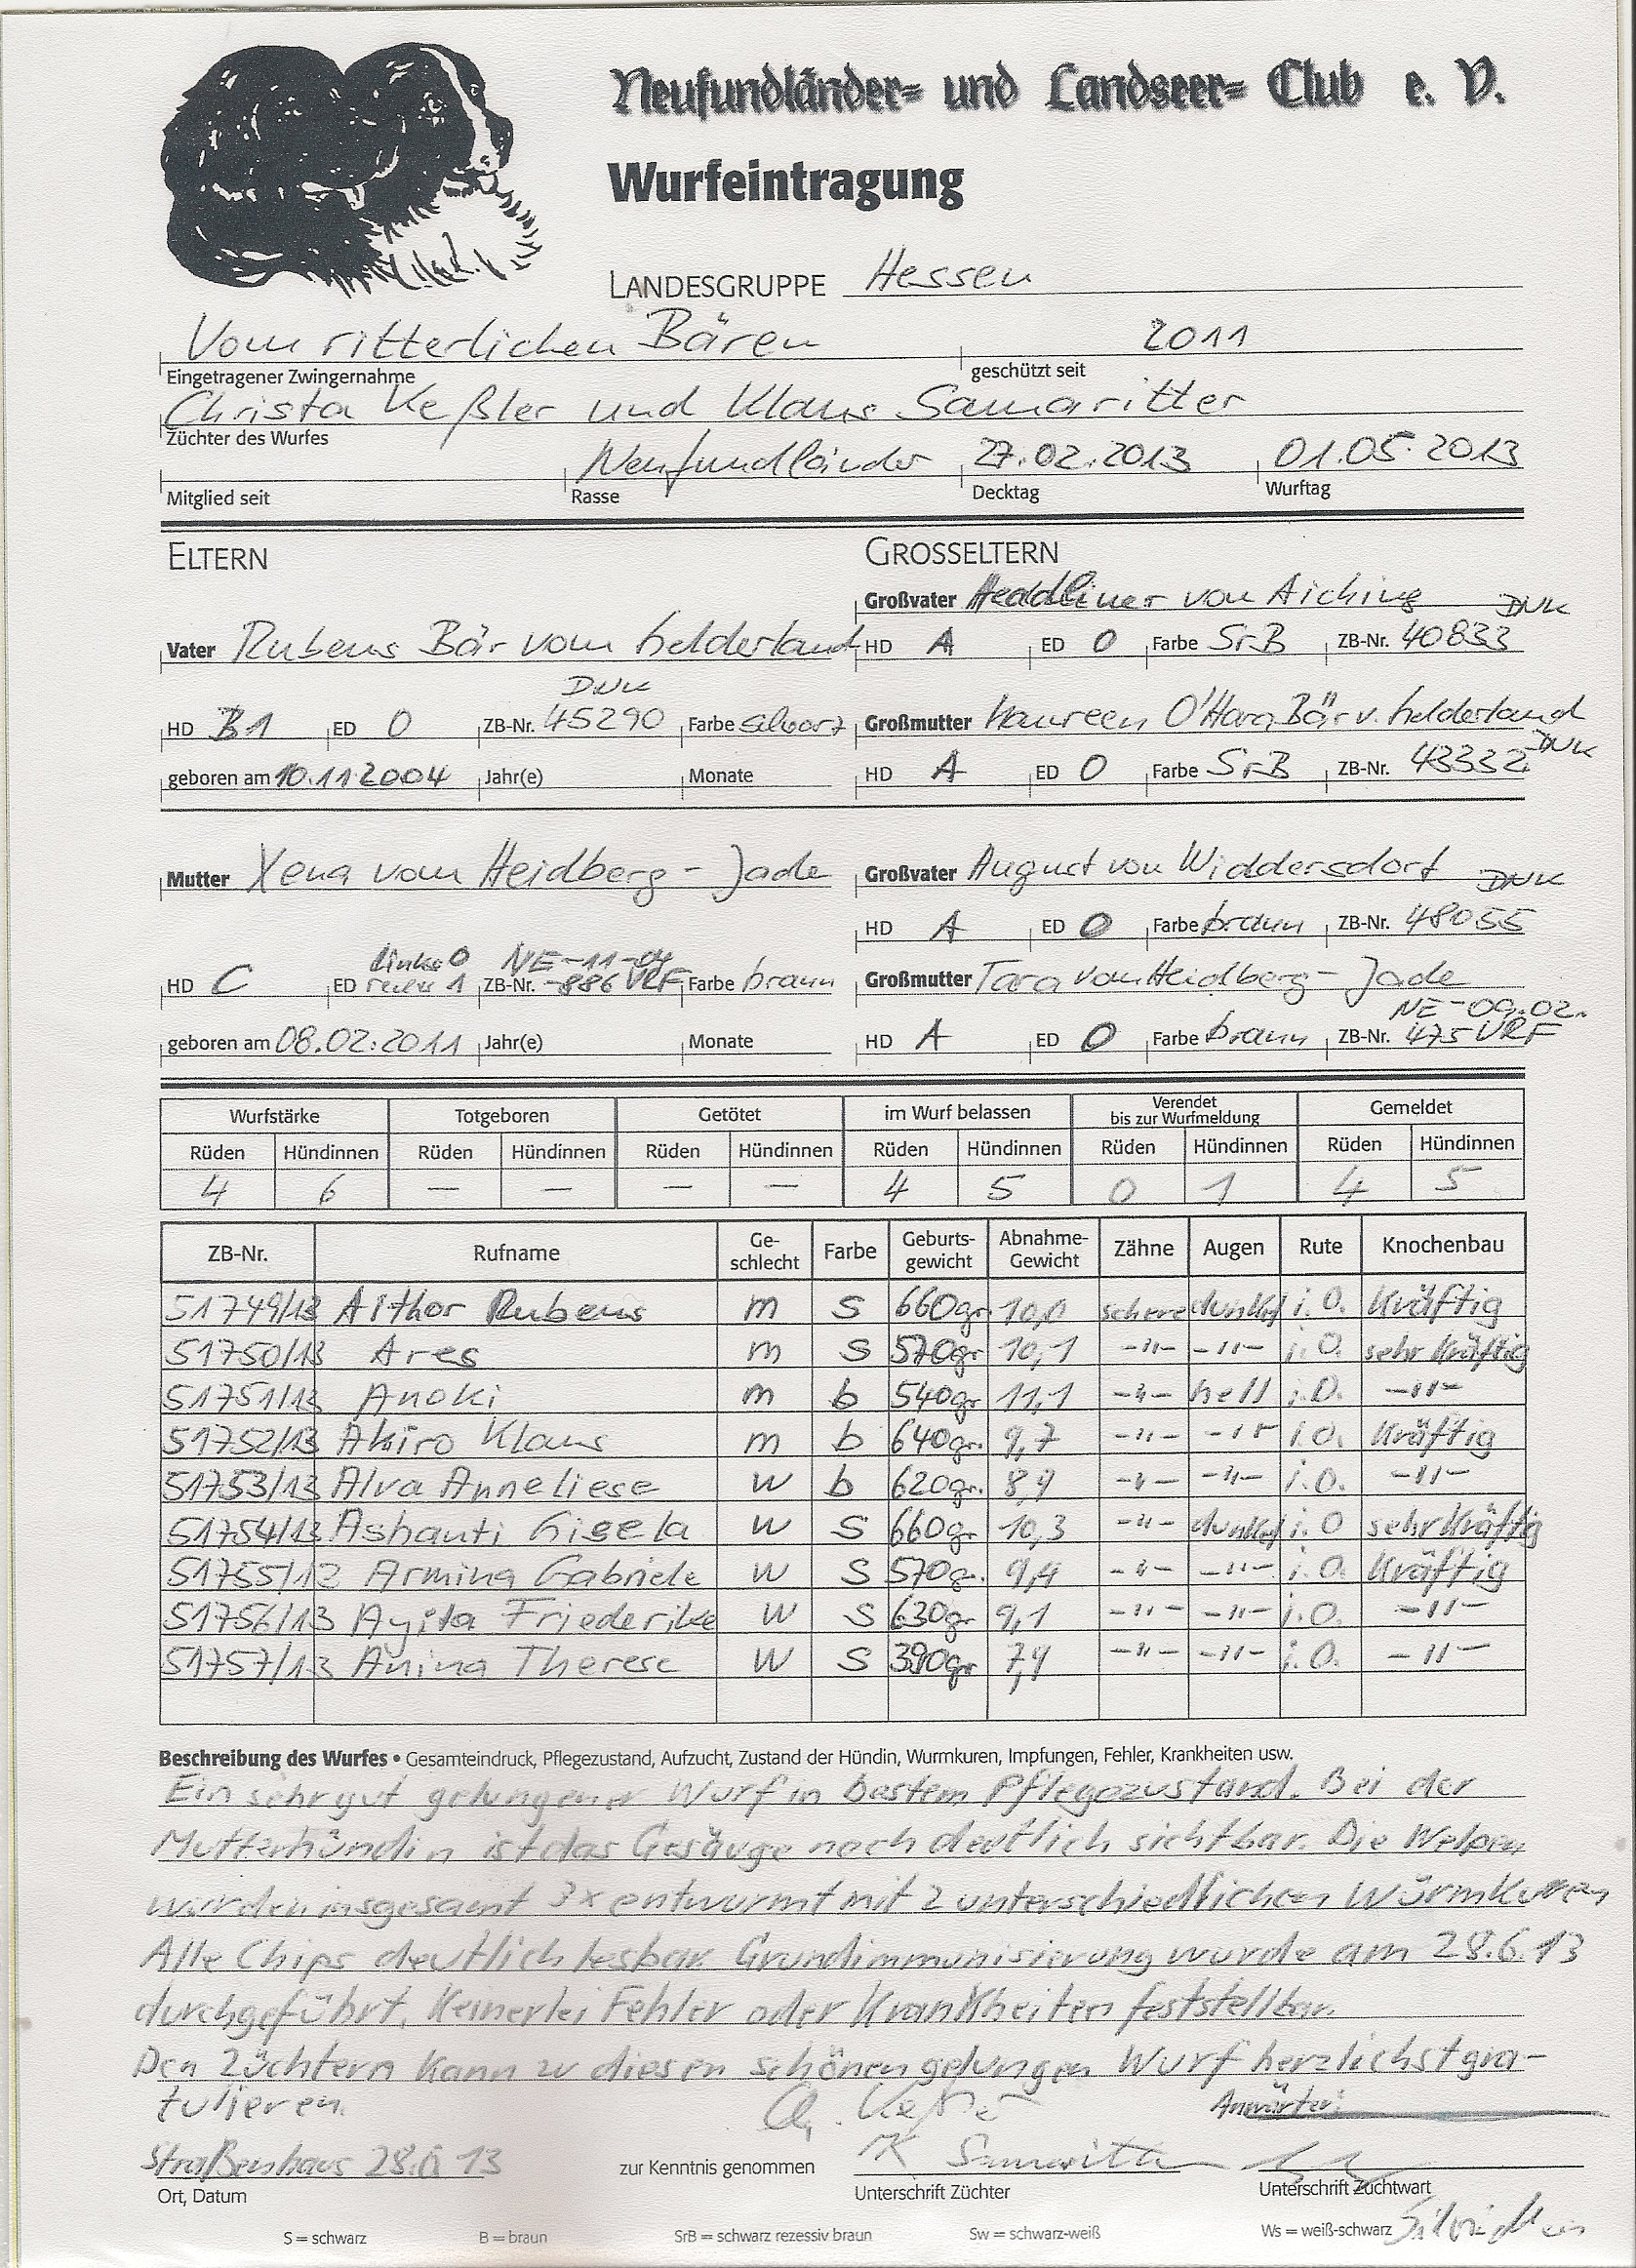 Neufundländer= und Landseer= Club e. V.
Wurfeintragung
LANDESGRUPPE Hessen
Vom ritterlichen Bären 2011
Eingetragener Zwingernahme geschützt seit
Christa Keßler und Klaus Samaritter
Züchter des Wurfes
Neufundländer 27.02.2013 01.05.2013
Mitglied seit Rasse Decktag Wurftag
ELTERN GROSSELTERN
Großvater Headliner von Aiching
DNK
Vater Rubens Bär vom Gelderland HD A ED 0 Farbe SrB ZB-Nr. 40833
DNK
HD B1 ED 0 ZB-Nr. 45290 Farbe schwarz Großmutter Maureen O'Hara Bär v. Gelderland
DNK
geboren am 10.11.2004 Jahr(e) Monate HD A ED 0 Farbe SrB ZB-Nr. 43332
Mutter Xena vom Heidberg-Jade Großvater August von Widdersdorf
DNK
HD A ED 0 Farbe braun ZB-Nr. 48055
links 0 NE-11-04
HD C ED rechts 1 ZB-Nr. -886 VRF Farbe braun Großmutter Tara vom Heidberg-Jade
NE-09.02.
geboren am 08.02.2011 Jahr(e) Monate HD A ED 0 Farbe braun ZB-Nr. 475 VRF
Wurfstärke Totgeboren Getötet im Wurf belassen Verendet bis zur Wurfmeldung Gemeldet
Rüden Hündinnen Rüden Hündinnen Rüden Hündinnen Rüden Hündinnen Rüden Hündinnen Rüden Hündinnen
4 6 — — — — 4 5 0 1 4 5
ZB-Nr. Rufname Ge-schlecht Farbe Geburts-gewicht Abnahme-Gewicht Zähne Augen Rute Knochenbau
51749/13 Aithor Rubens m S 660gr. 10,0 schere dunkel i.O. Kräftig
51750/13 Ares m S 570gr 10,1 -"- -"- i.O. sehr kräftig
51751/13 Anoki m b 540gr 11,1 -"- hell i.O. -"-
51752/13 Akiro Klaus m b 640gr. 9,7 -"- -"- i.O. Kräftig
51753/13 Alva Anneliese w b 620gr. 8,9 -"- -"- i.O. -"-
51754/13 Ashanti Gisela w S 660gr 10,3 -"- dunkel i.O sehr kräftig
51755/13 Armina Gabriele w S 570gr. 9,4 -"- -"- i.O. Kräftig
51756/13 Ayita Friederike w S 630gr 9,1 -"- -"- i.O. -"-
51757/13 Anina Therese w S 390gr 7,9 -"- -"- i.O. -"-
Beschreibung des Wurfes • Gesamteindruck, Pflegezustand, Aufzucht, Zustand der Hündin, Wurmkuren, Impfungen, Fehler, Krankheiten usw.
Ein sehr gut gelungener Wurf in bestem Pflegezustand. Bei der
Mutterhündin ist das Gesäuge noch deutlich sichtbar. Die Welpen
wurden insgesamt 3x entwurmt mit 2 unterschiedlichen Wurmkuren
Alle Chips deutlich lesbar. Grundimmunisierung wurde am 28.6.13
durchgeführt. Keinerlei Fehler oder Krankheiten feststellbar.
Den Züchtern kann zu diesen schönen gelungen Wurf herzlichst gra-
tulieren.
Ch. Keßler Anwärter:
Straßenhaus 28.6 13 zur Kenntnis genommen K Samaritter
Ort, Datum Unterschrift Züchter Unterschrift Zuchtwart
S = schwarz B = braun SrB = schwarz rezessiv braun Sw = schwarz-weiß Ws = weiß-schwarz